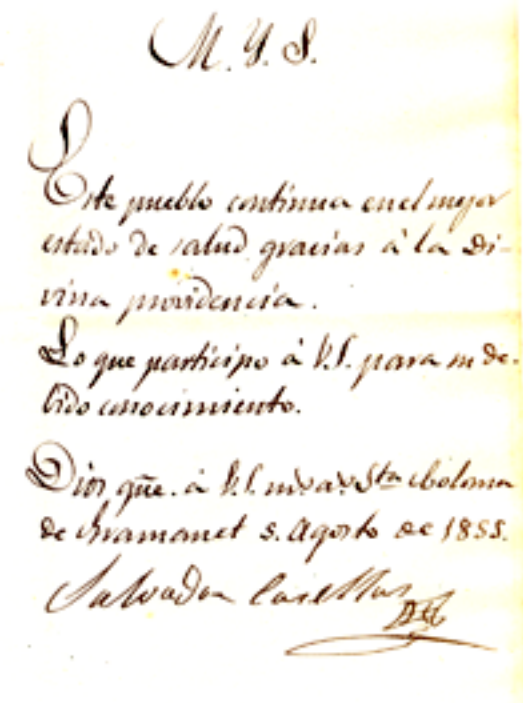 M. Y. S.
Este pueblo continua en el mejor
estado de salud, gracias à la di-
vina providencia.
Lo que participo à V.S. para su de-
bido conocimiento.
Dios gūe. à V.S. ms. as. Sta Coloma
de Gramanet 5. Agosto de 1855.
Salvador Casellas